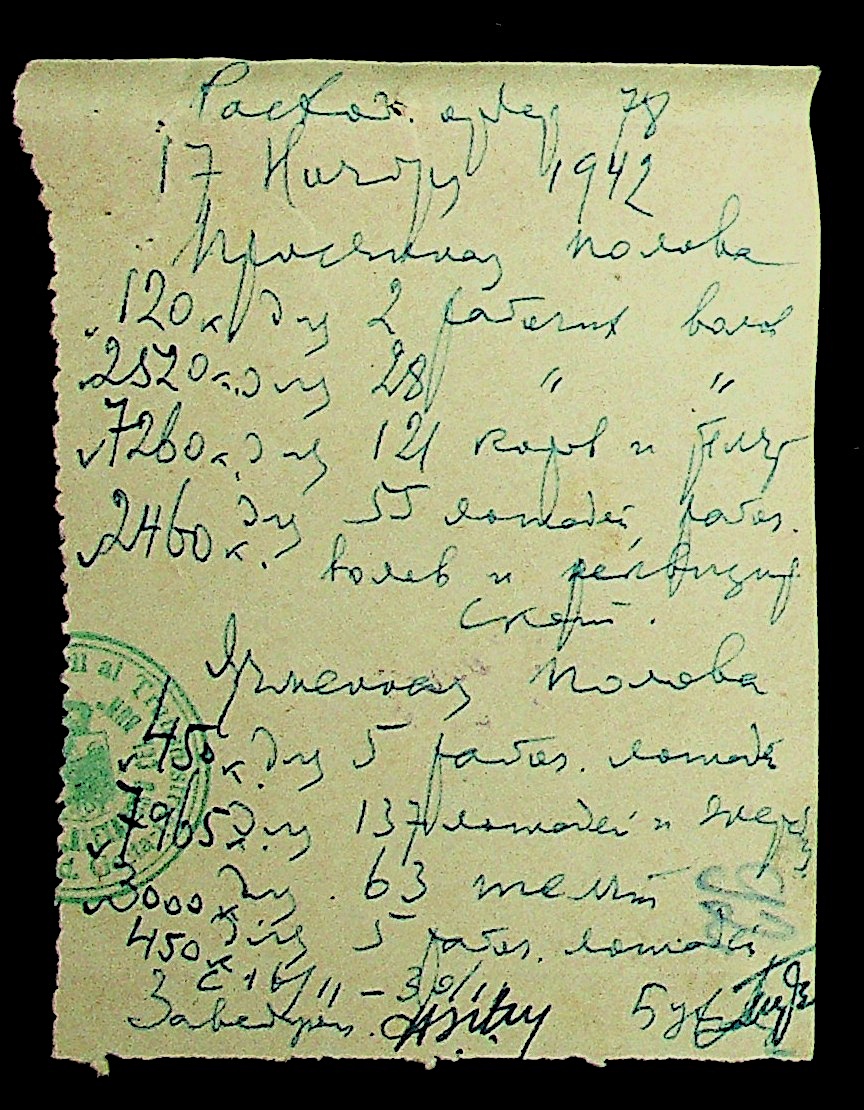 Расход. ордер 78
17 Ноября 1942
Просяная полова
120 к для 2 рабочих волов
2520 к. для 28 " "
7260 к. для 121 коров и
2460 к. для 55 лошадей рабоч.
волов и реквизир
скот.
Ячменная полова
450 к. для 5 рабоч. лошад
7965 к. для 137 лошадей и
3000 к для 63 телят
450 к для 5 рабоч. лошадей
с 16/11 – 30/11
Заведующ.
al